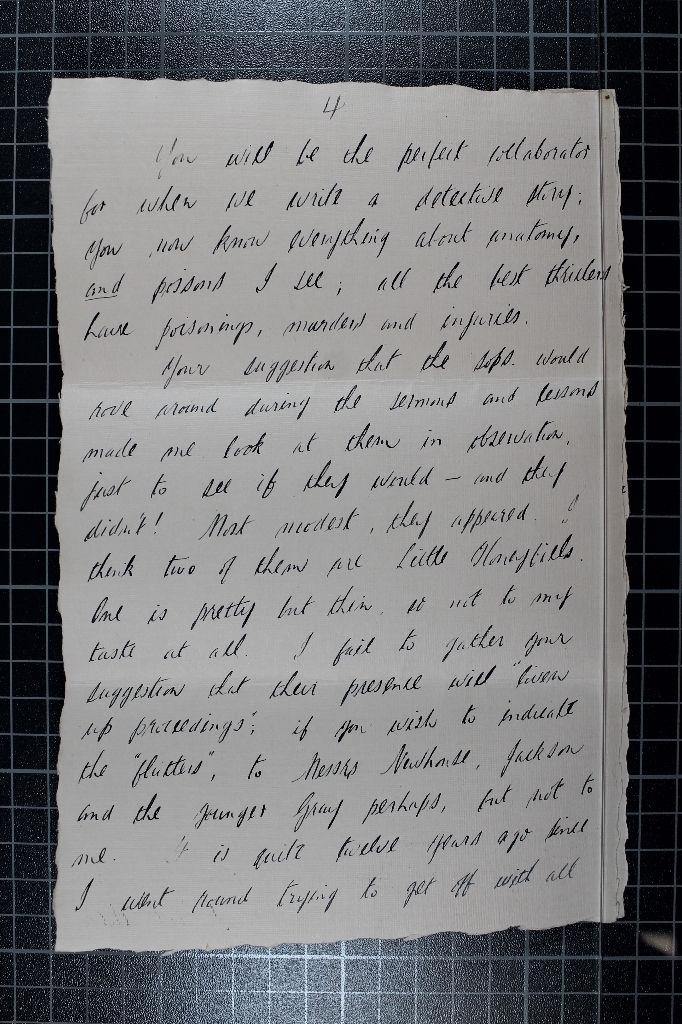 4
You will be the perfect collaborator
for when we write a detective story;
you now know everything about anatomy,
and poisons I see; all the best thrillers
have poisonings, murders and injuries.
Your suggestion that the sops. would
rove around during the sermons and lessons
made me look at them in observation,
just to see if they would — and they
didn't! Most modest, they appeared. I
think two of them are Little Honeyfields.
One is pretty but thin, so not to my
taste at all. I fail to gather your
suggestion that their presence will "liven
up proceedings"; if you wish to indicate
the "flutters", to Messrs Newhouse, Jackson
and the younger Gray perhaps, but not to
me. It is quite twelve years ago since
I went round trying to get off with all